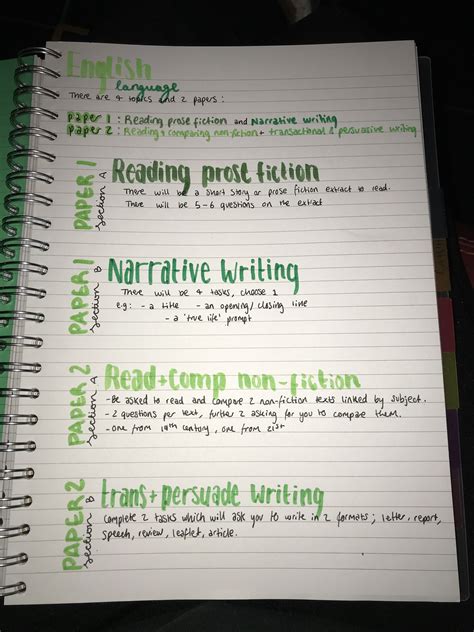 English
language
There are 4 topics and 2 papers :
Paper 1 : Reading prose fiction and Narrative writing
Paper 2 : Reading + comparing non-fiction + transactional & persuasive writing
PAPER 1
section A
Reading prose fiction
There will be a short story or prose fiction extract to read.
There will be 5-6 questions on the extract
PAPER 1
section B
Narrative writing
There will be 4 tasks, choose 1
e.g: - a title - an opening/closing line
- a 'true life' prompt
PAPER 2
section A
Read+comp non-fiction
-Be asked to read and compare 2 non-fiction texts linked by subject.
- 2 questions per text, further 2 asking for you to compare them.
- one from 19th century, one from 21st
PAPER 2
section B
trans+persuade writing
Complete 2 tasks which will ask you to write in 2 formats; letter, report,
speech, review, leaflet, article.